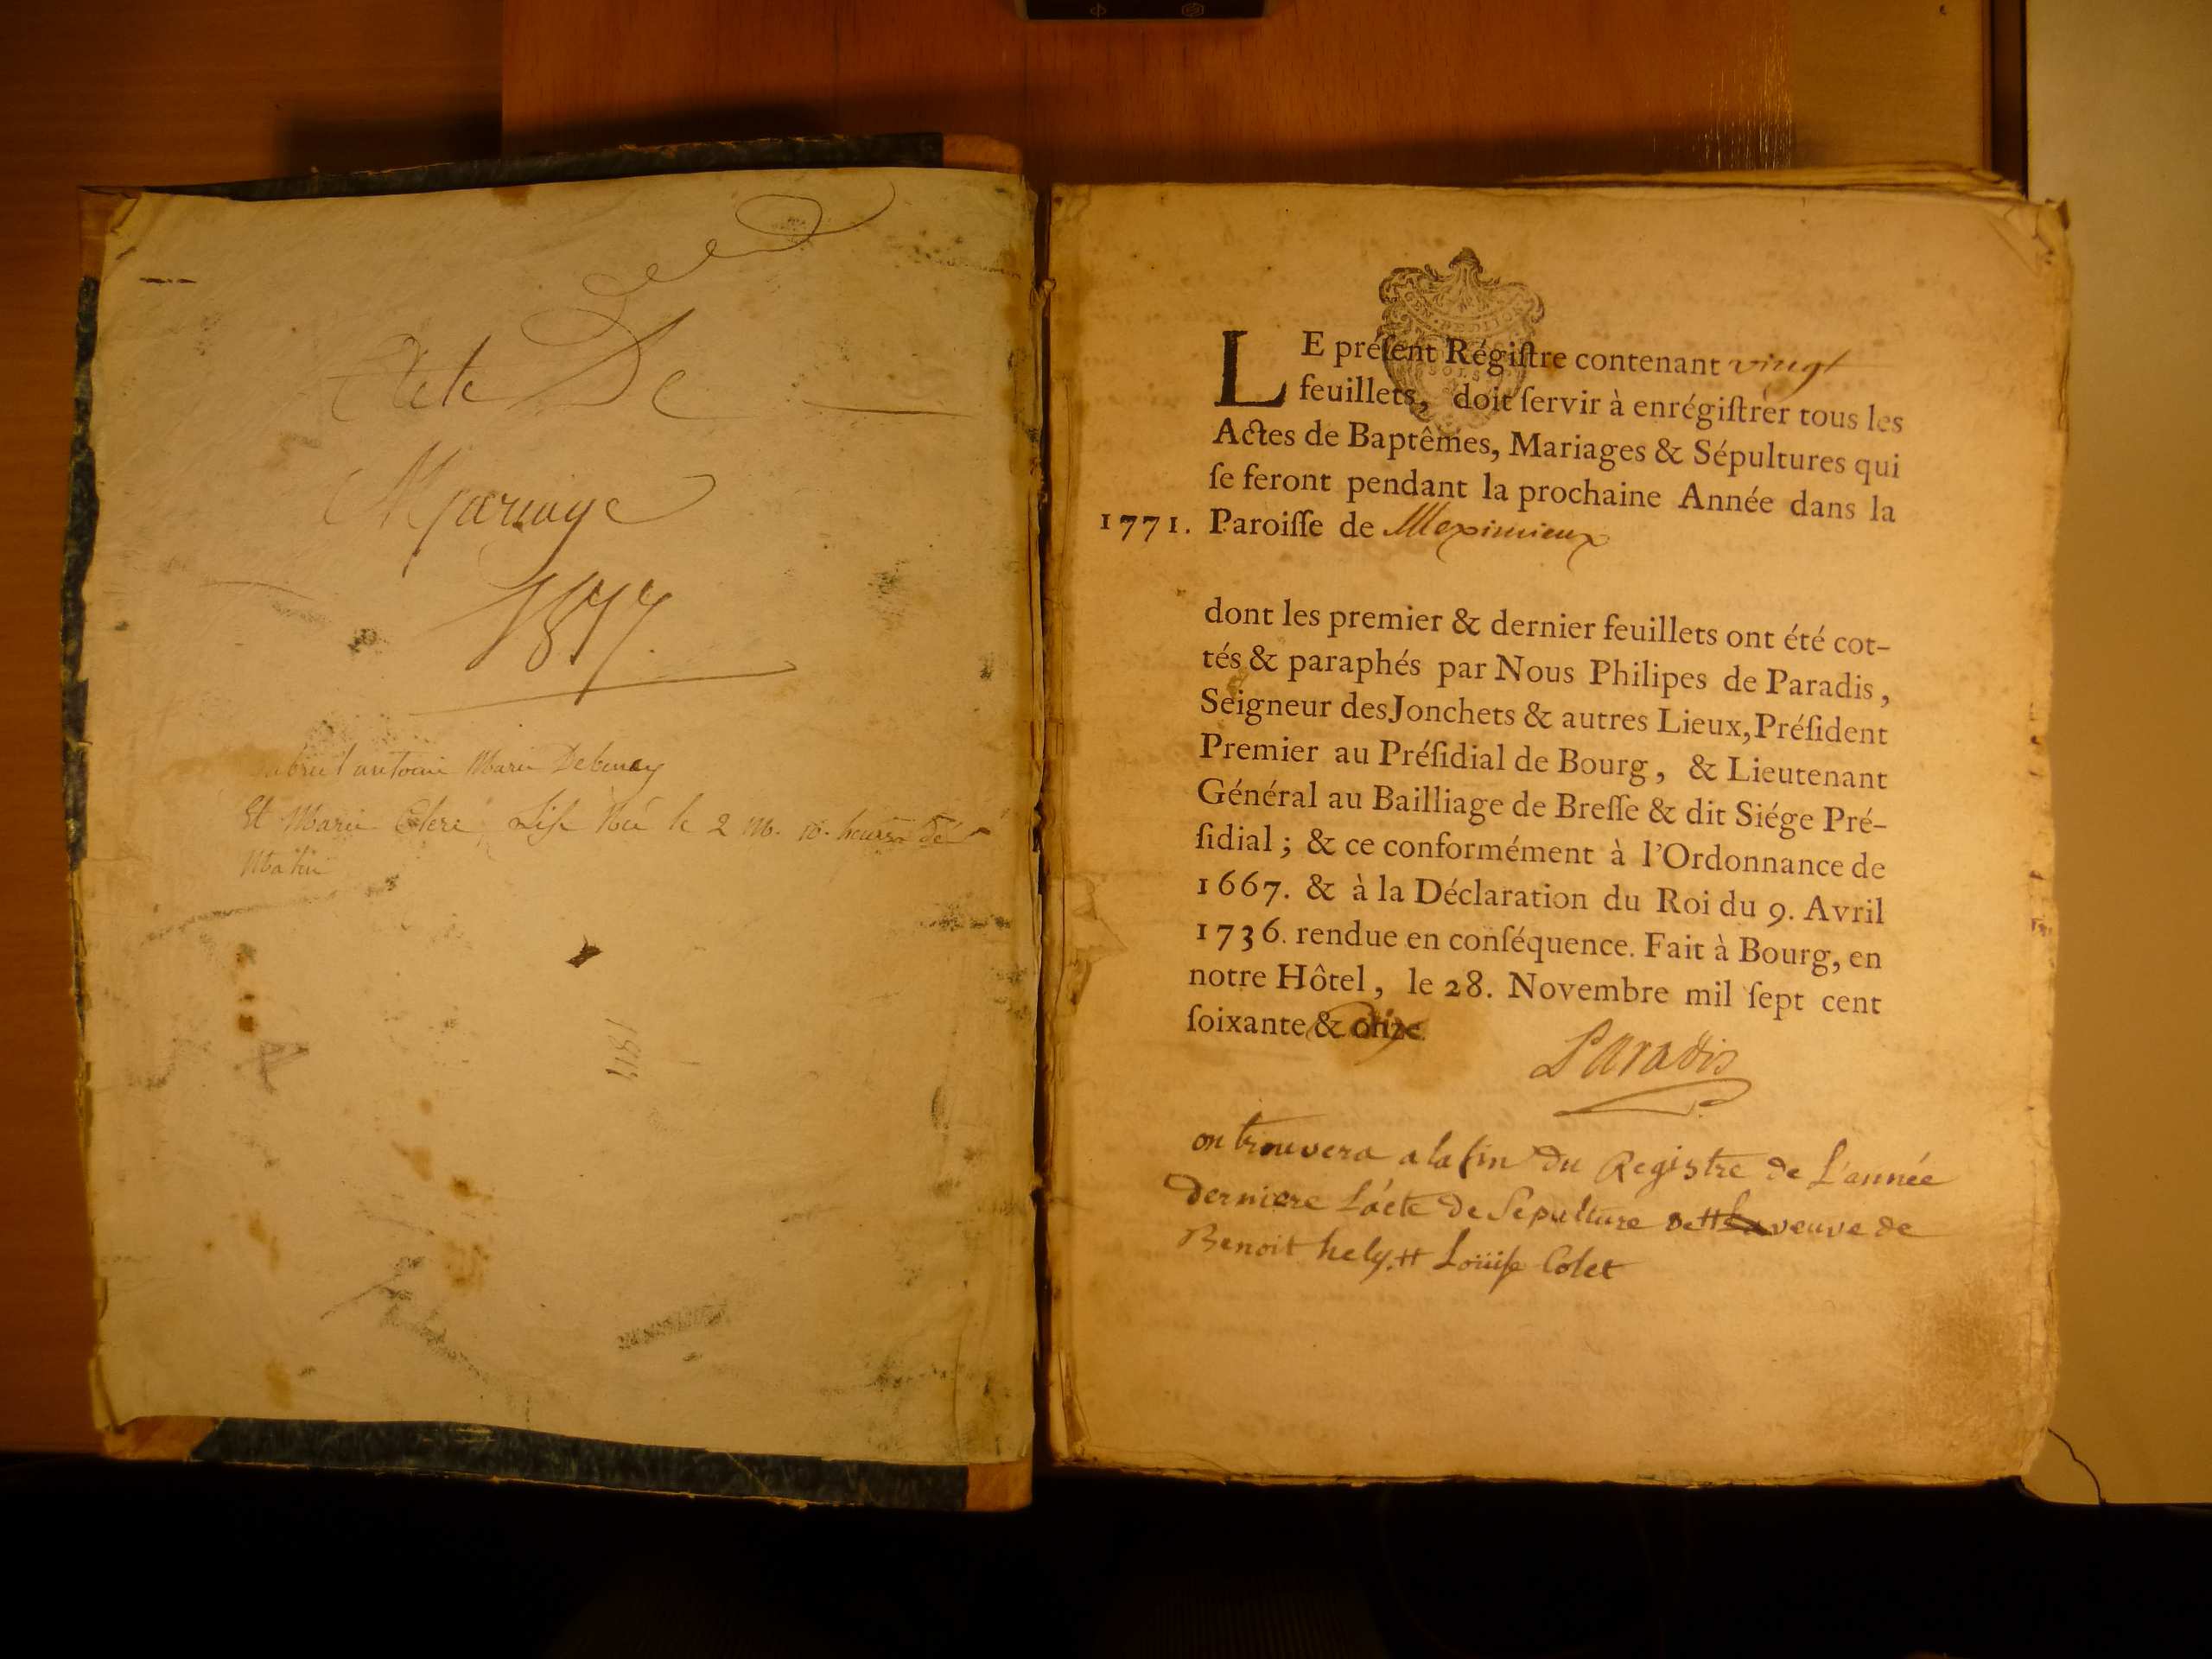 Acte De
Mariage
1877.
antoine Marie Debeney
Et Marie né le 2 m. 10. heures de
Matin
LE préſent Régiſtre contenant vingt
feuillets, doit ſervir à enrégiſtrer tous les
Actes de Baptêmes, Mariages & Sépultures qui
ſe feront pendant la prochaine Année dans la
1771. Paroiſſe de Meximieux
dont les premier & dernier feuillets ont été cot-
tés & paraphés par Nous Philipes de Paradis,
Seigneur des Jonchets & autres Lieux, Préſident
Premier au Préſidial de Bourg, & Lieutenant
Général au Bailliage de Breſſe & dit Siége Pré-
ſidial; & ce conformément à l'Ordonnance de
1667. & à la Déclaration du Roi du 9. Avril
1736. rendue en conſéquence. Fait à Bourg, en
notre Hôtel, le 28. Novembre mil ſept cent
ſoixante & onze
Paradis
on trouvera a la fin du Registre de L'année
derniere L'acte de Sepulture de # la veuve de
Benoit hely. # Loüise Colet